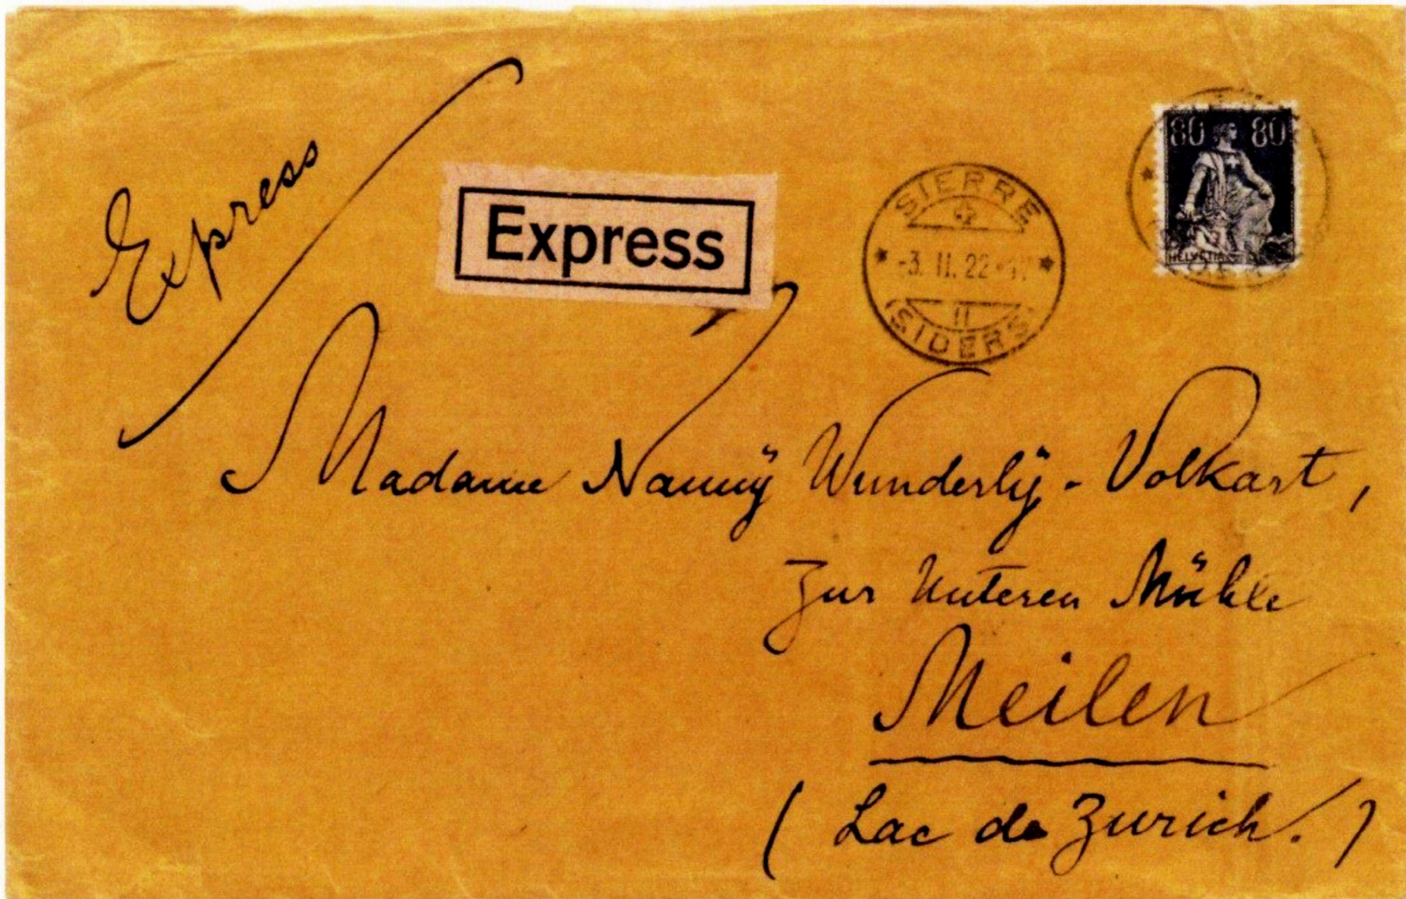 Express
Express
SIERRE
-3. II. 22
II
(SIDERS)
80 80
HELVETIA
Madame Nanny Wunderly-Volkart,
Zur Unteren Mühle
Meilen
( Lac de Zurich. )